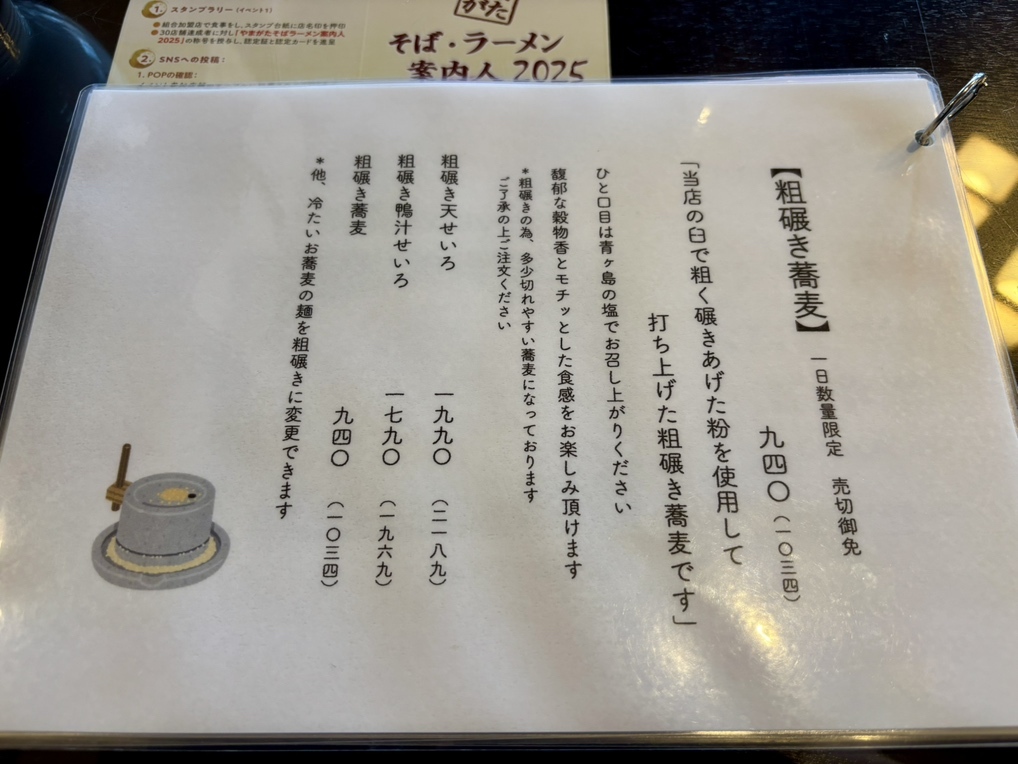 1. スタンプラリー（イベント1）
●組合加盟店で食事をし、スタンプ台紙に店名印を押印
●30店舗達成者に対し「やまがたそばラーメン案内人
2025」の称号を授与し、認定証と認定カードを進呈
2. SNSへの投稿：
1. POPの確認：
がた
そば・ラーメン
案内人 2025
一日数量限定　売切御免
【粗碾き蕎麦】
九四〇（一〇三四）
「当店の臼で粗く碾きあげた粉を使用して
打ち上げた粗碾き蕎麦です」
ひと口目は青ヶ島の塩でお召し上がりください
馥郁な穀物香とモチッとした食感をお楽しみ頂けます
*粗碾きの為、多少切れやすい蕎麦になっております
ご了承の上ご注文ください
粗碾き天せいろ　一九九〇（二一八九）
粗碾き鴨汁せいろ　一七九〇（一九六九）
粗碾き蕎麦　九四〇（一〇三四）
*他、冷たいお蕎麦の麺を粗碾きに変更できます